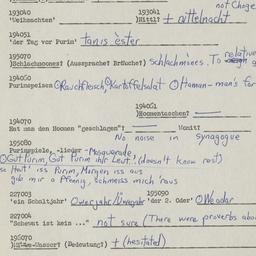 not Chage
193040 193041
'Weihnachten' )Hittl? + nittelnacht
194051
'der Tag vor Purim' tanis ester
195070 relative
)Schlachmones? (Aussprache? Bräuche?) Schlachmones. To
194060
Purimspeisen ① Rauchfleisch, ② Kartoffelsalat ① Haman - man's for
194061
)Homentaschen?
194070
Hat man den Hamen "geschlagen"? Womit?
195080 No noise in synagogue
Purimspiele, -lieder - Masquerade
① Gut Purim, Gut Purim ihr Leut! (doesn't know rest)
Haut' iss Purim, Morgen iss aus
gib mir a Pfennig, schmeiss mich 'raus
227003 195090
'ein Schaltjahr' 'der 2. Adar' ① We adar
227004
"Schewat ist kein ..." not sure (There were proverbs abou
196070
-Wasser? (Bedeutung?) + (hesitated)